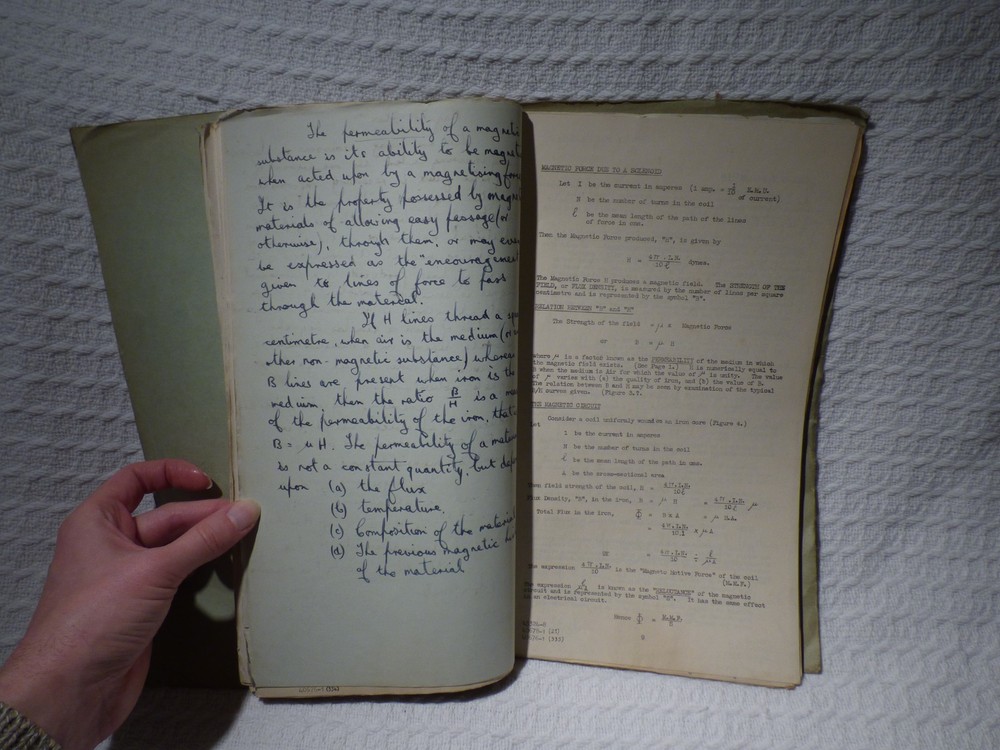 The permeability of a magnetic
substance is its ability to be magnet
when acted upon by a magnetising force
It is the property possessed by magne
materials of allowing easy passage (or
otherwise), through them, or may even
be expressed as the "encouragement
given to lines of force to pass
through the material.
If H lines thread a sq
centimetre, when air is the medium (or
other non-magnetic substance) whereas
B lines are present when iron is the
medium, then the ratio B/H is a me
of the permeability of the iron, that
B = μ H. The permeability of a mater
is not a constant quantity but dep
upon (a) the flux
(b) temperature.
(c) Composition of the material
(d) The previous magnetic
of the material
MAGNETIC FORCE DUE TO A SOLENOID
Let I be the current in amperes (1 amp. = 1/10 E.M.U. of current)
N be the number of turns in the coil
ℓ be the mean length of the path of the lines
of force in cms.
Then the Magnetic Force produced, "H", is given by
H = 4π.I.N./10ℓ dynes.
The Magnetic Force H produces a magnetic field. The STRENGTH OF THE
FIELD, or FLUX DENSITY, is measured by the number of lines per square
centimetre and is represented by the symbol "B".
RELATION BETWEEN "B" and "H"
The Strength of the field = μ x Magnetic Force
or B = μ H
where μ is a factor known as the PERMEABILITY of the medium in which
the magnetic field exists. (See Page 1.) B is numerically equal to
H when the medium is Air for which the value of μ is unity. The value
of μ varies with (a) the quality of iron, and (b) the value of B.
The relation between B and H may be seen by examination of the typical
B/H curves given. (Figure 2.).
THE MAGNETIC CIRCUIT
Consider a coil uniformly wound on an iron core (Figure 4.)
Let
I be the current in amperes
N be the number of turns in the coil
ℓ be the mean length of the path in cms.
A be the cross-sectional area
Then field strength of the coil, H = 4π.I.N./10ℓ
Flux Density, "B", in the iron, B = μ H = 4π.I.N./10ℓ μ
Total Flux in the iron, = B x A = μ H.A.
= 4π.I.N./10.ℓ x μA
or = 4π.I.N./10 ÷ ℓ/μA
The expression 4π.I.N./10 is the "Magneto Motive Force" of the coil
(M.M.F.)
The expression ℓ/μA is known as the "RELUCTANCE" of the magnetic
circuit and is represented by the symbol "S". It has the same effect
as an electrical circuit.
Hence = M.M.F./S